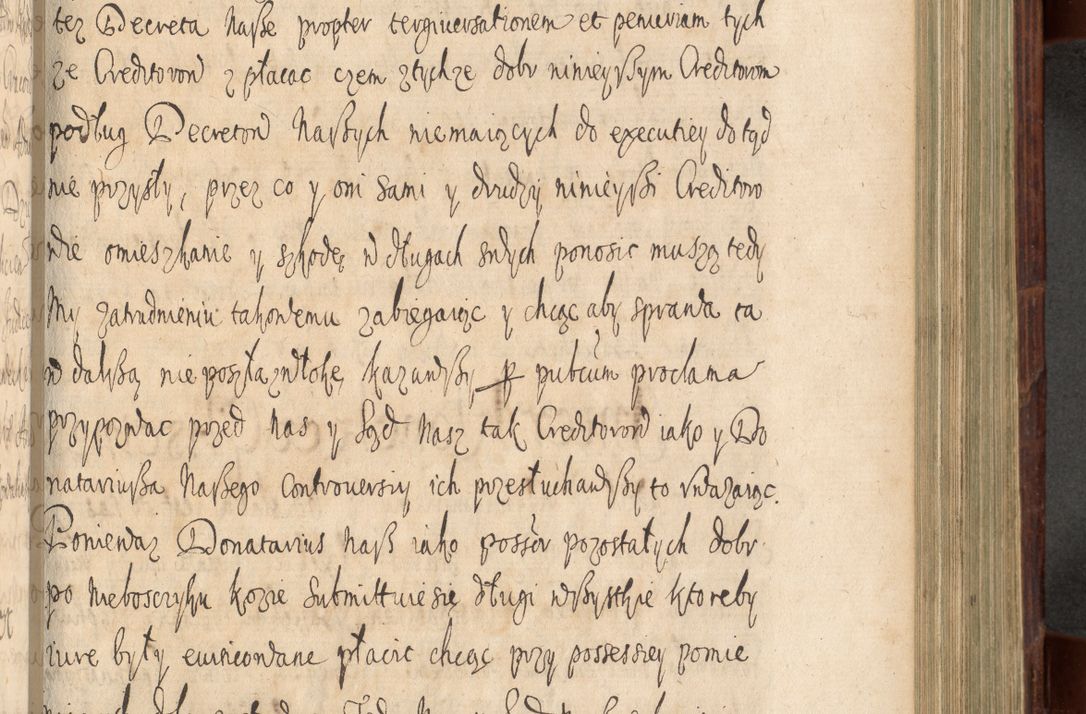 tez Decreta Nasze propter tergiuersationem et penuriam tych
ze Creditorow z płacac czem z tychze dobr ninieyszym Creditorom
podług Decretow Naszych niemaiących do executiey dotąd
nie przyszły, przez co y oni sami y drudzy ninieyszi Creditoro
wie omieszkanie y szkodę w długach swych ponosic muszą tedy
My zatrudnieniu takowemu zabiegaiąc y chcąc aby sprawa ta
w dalszą nie poszła zwłokę, kazawszy p publcum proclama
przypozwac przed nas y Sąd Nasz tak Creditorow iako y Do
natariusza Naszego controuersiy ich przesłuchawszy to vważaiąc.
Poniewaz Donatarius nasz iako possor pozostałych dobr
po Nieboszczyku kozie Submittuie się długi wszystkie ktoreby
iure były euincowane płacic chcąc przy possessiey pomie